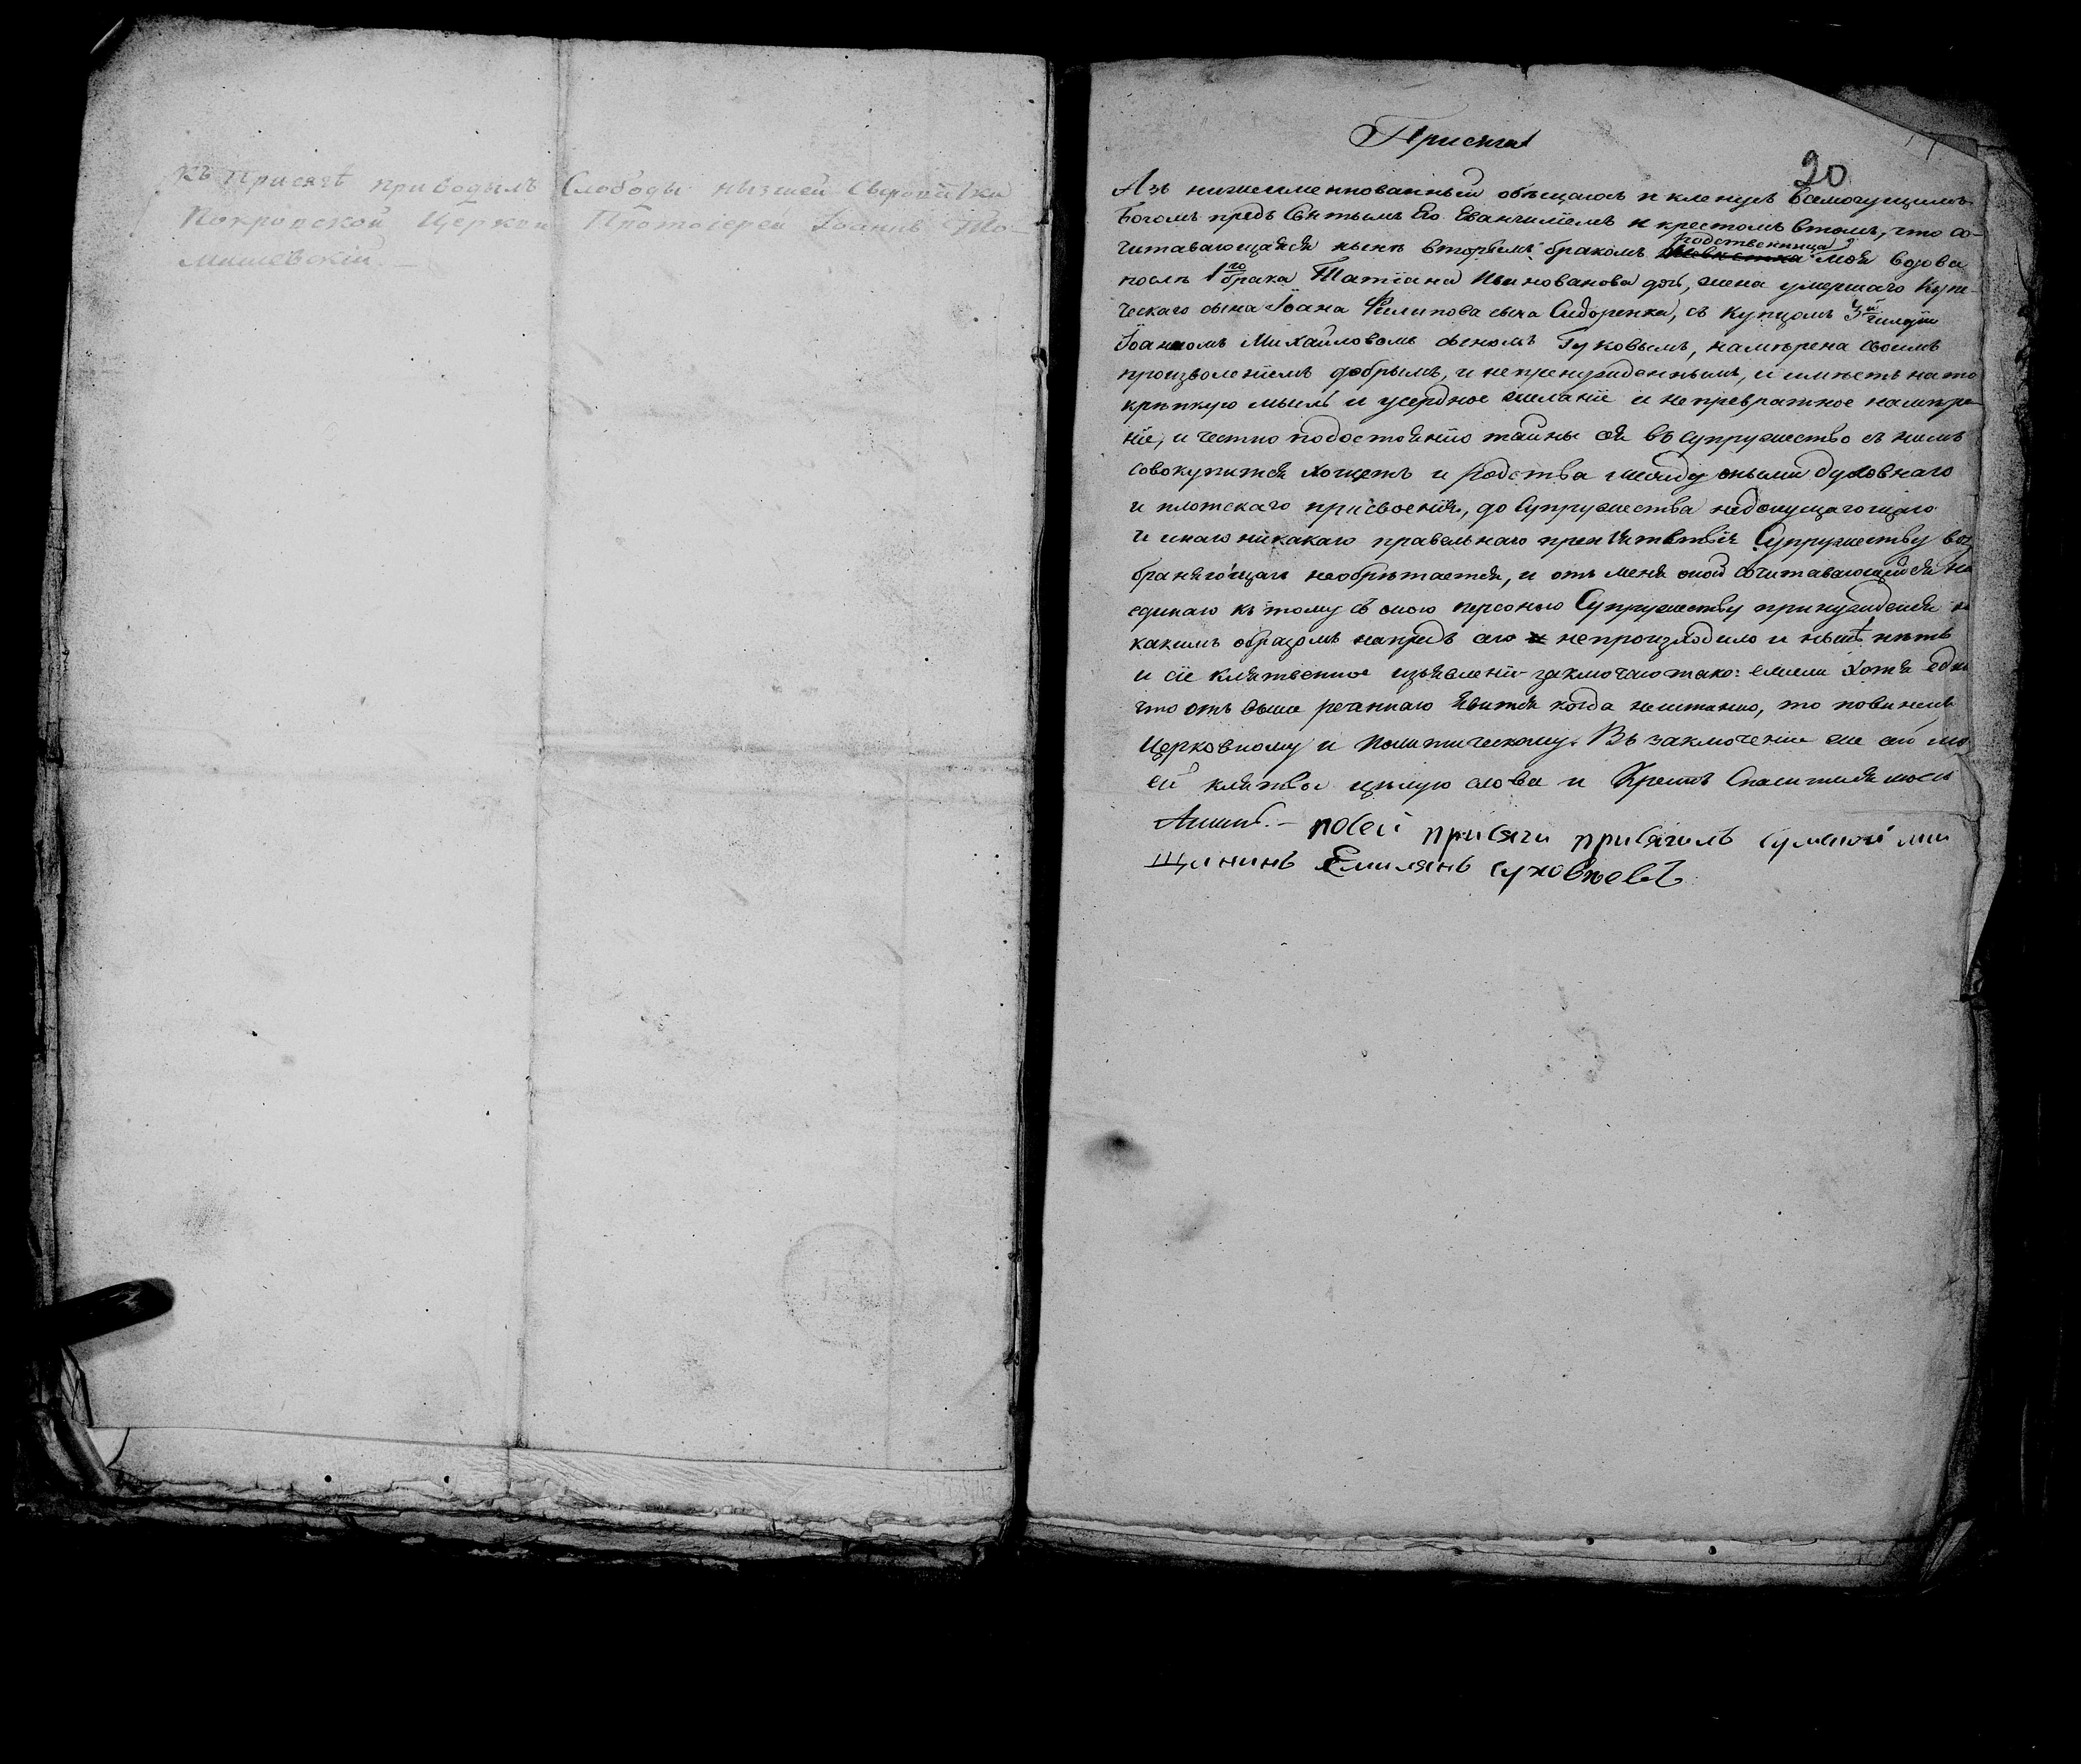 къ присягѣ приводилъ Слободы нызшей Сыроватки
Покровской Церкви Протоіерей Іоаннъ То-
мишевскій.
Присяга
20
Азъ нижеименнованный обѣщаюсь и кленусъ Всемогущимъ
Богомъ предъ Святымъ Его Евангилиемъ и крестомъ втомъ, что со-
читавающаяся нынѣ вторымъ бракомъ родственница моя вдова
послѣ 1го брака Татіана дочь, жена умершаго Купе-
ческаго сына Іоана Филипова сына Сидоренка, съ купцомъ 3й гилдіи
Іоанномъ Михайловомъ сыномъ Гуковымъ, намѣрена своимъ
произволеніемъ добрымъ, и непренужденнымъ, и имѣетъ на то
крѣпкую мысль и усердное желаніе и непревратное намѣре-
ніе, и честно подостоянію тайны сея въ супружество съ нимъ
совокупится хощетъ и родства между оными духовнаго
и плотскаго присвоенія, до Супружества недопущающаго
и инаго никакаго правельнаго препятствія Супружеству воз
браняющаго необрѣтается, и отъ меня оной сочитавающейся ни
единаго къ тому съ оною персоною Супружеству принужденія ни
какимъ образомъ напредъ сего непроизходило и нынѣ нѣтъ
и сіе клятвенное изъявленіе заключаю тако: ежели хотя едно
что отъ выше речаннаго явится когда неистинно, то повиненъ
Церковному и политическому. Въ заключеніе же сей мо
ей клятвы цѣлую слова и Крестъ Спасителя моего
Аминь. – посей присяги присягилъ сумской ми
щининъ Емилянъ суховѣевъ